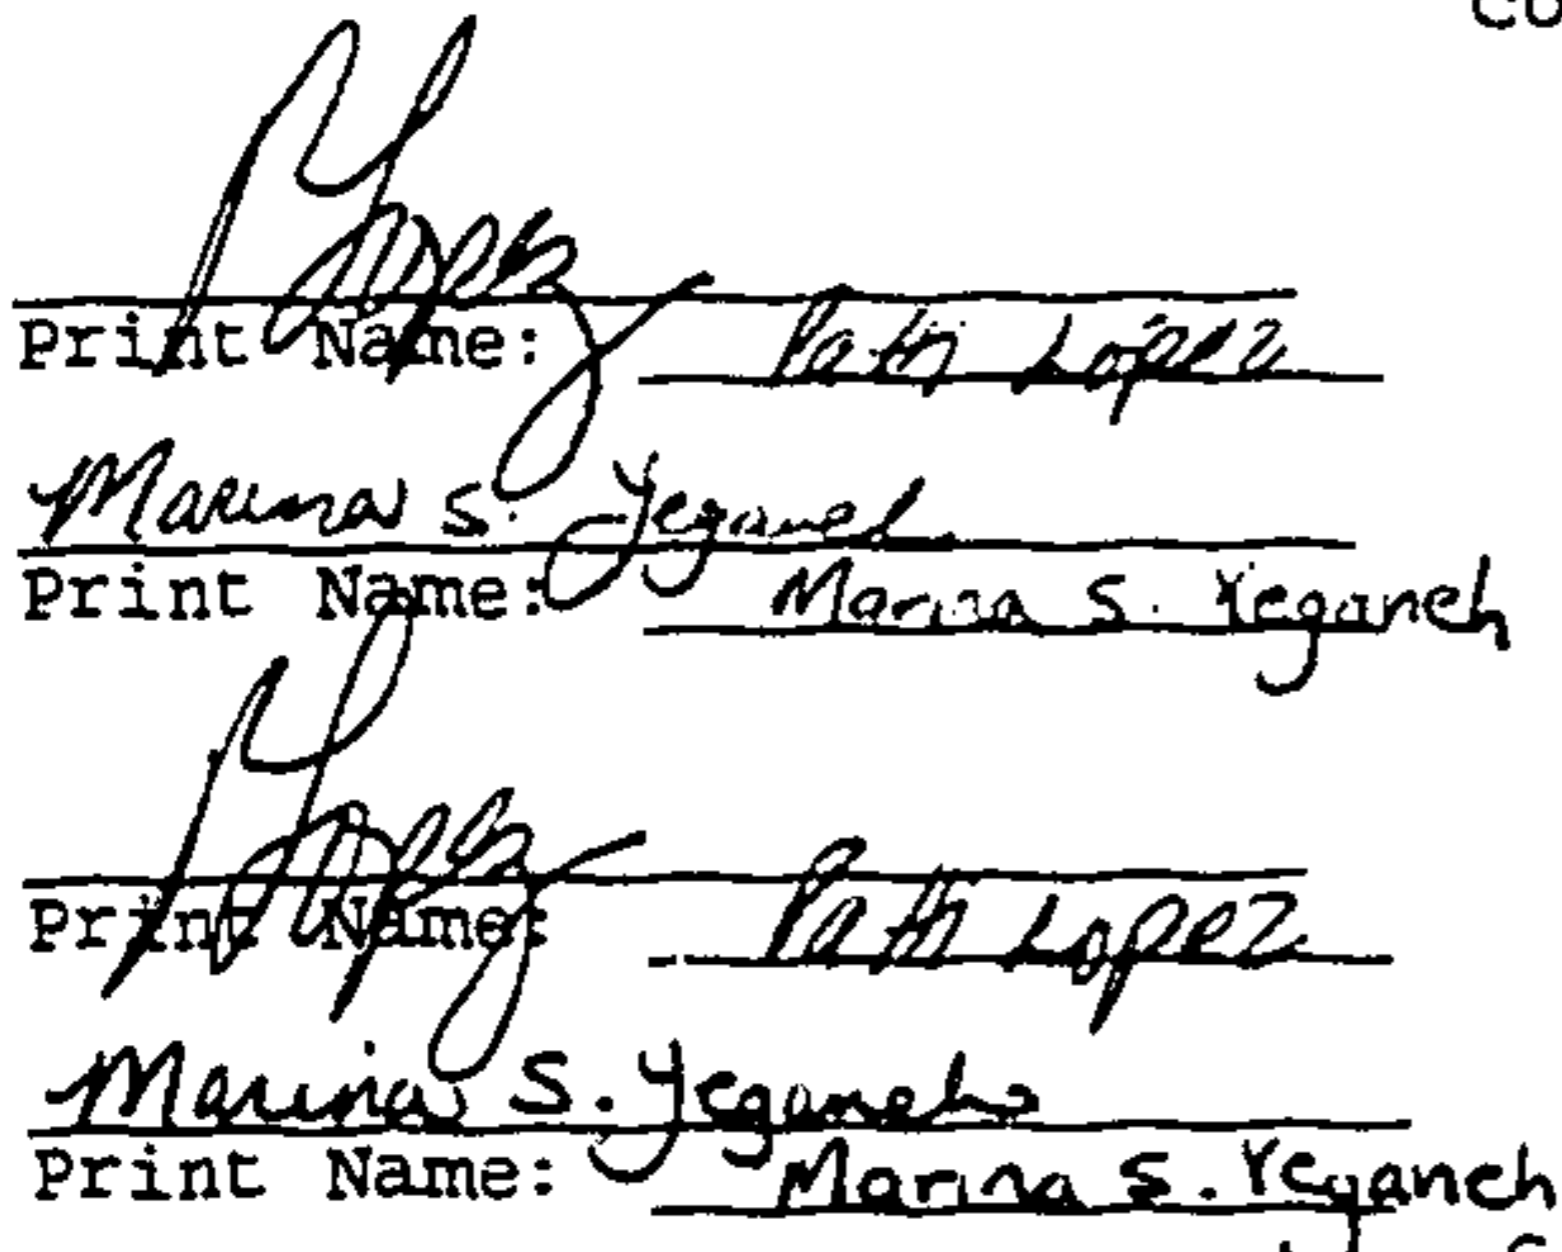 Co
Lopez
Print Name: Patti Lopez
Marina S. Yeganeh
Print Name: Marina S. Yeganeh
Lopez
Print Name: Patti Lopez
Marina S. Yeganeh
Print Name: Marina S. Yeganeh